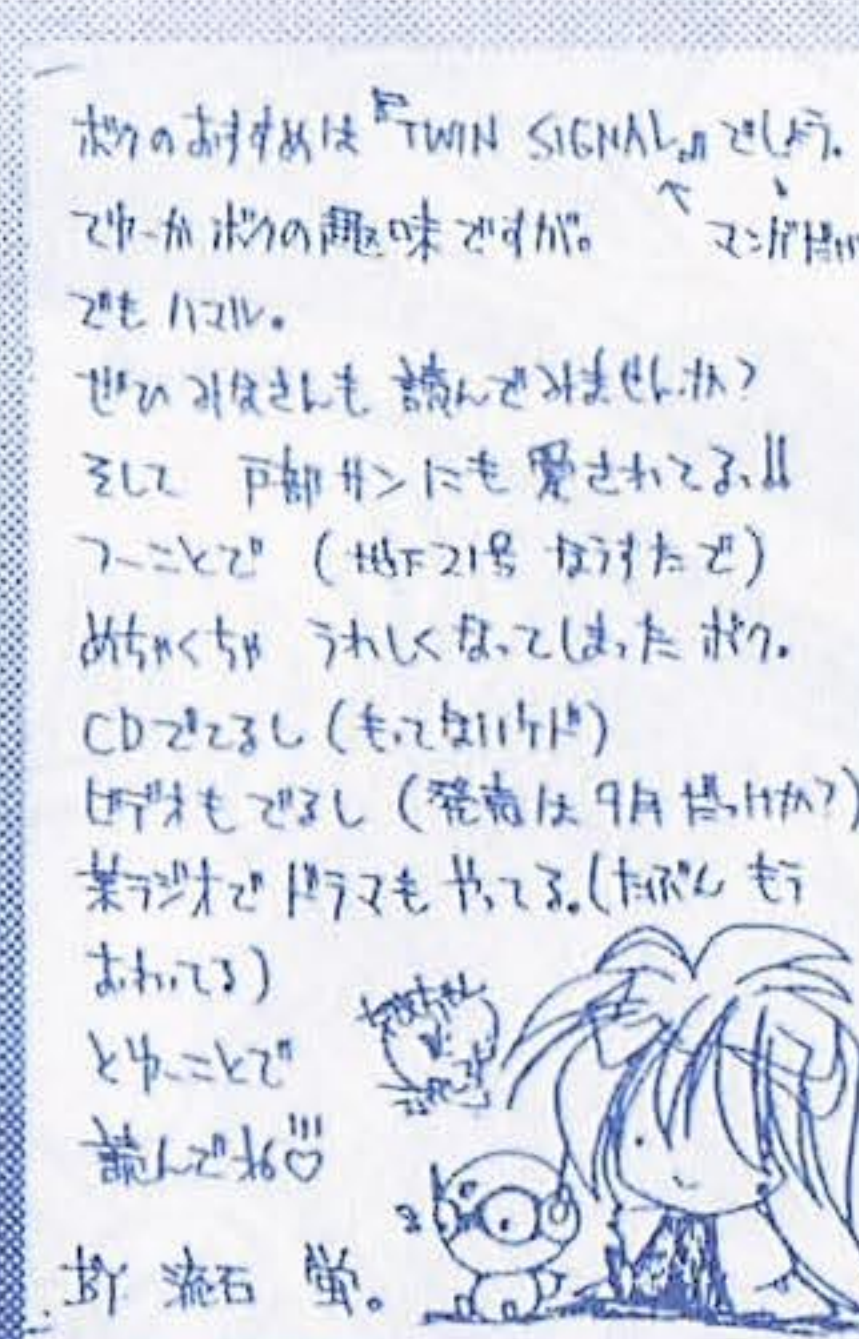 ボクのおすすめは『TWIN SIGNAL。』でしょう。
てゆーかボクの趣味ですが。
マンガだが
でもハマル。
ぜひみなさんも 読んでみませんか?
そして 戸部サンにも愛されてるっ!!
つーことで (地下21号 なうすたで)
めちゃくちゃ うれしくなってしまったボク。
CDでてるし(もってないケド)
ビデオもでるし(発売は9月だっけか?)
某ラジオでドラマもやってる。(たぶん もう
おわってる)
とゆーことで
読んでね!!!♡
BY 流石 蛍。